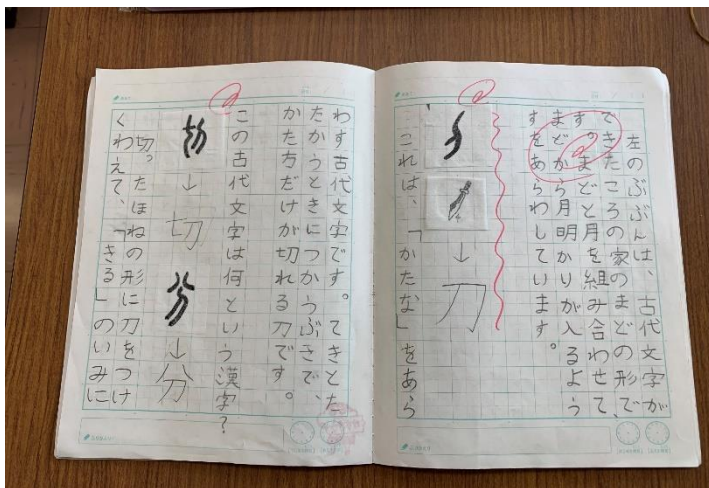 左のぶぶんは、古代文字が
できたころの家のまどの形で
す。まどと月を組み合わせて、
まどから月明かりが入るよう
すをあらわしています。
↓刀
これは、「かたな」をあら
わす古代文字です。てきとた
たかうときにつかうぶきで、
かた方だけが切れる刀です。
この古代文字は何という漢字?
↓切
↓分
切。たほねの形に刀をつけ
くわえて、「きる」のいみに